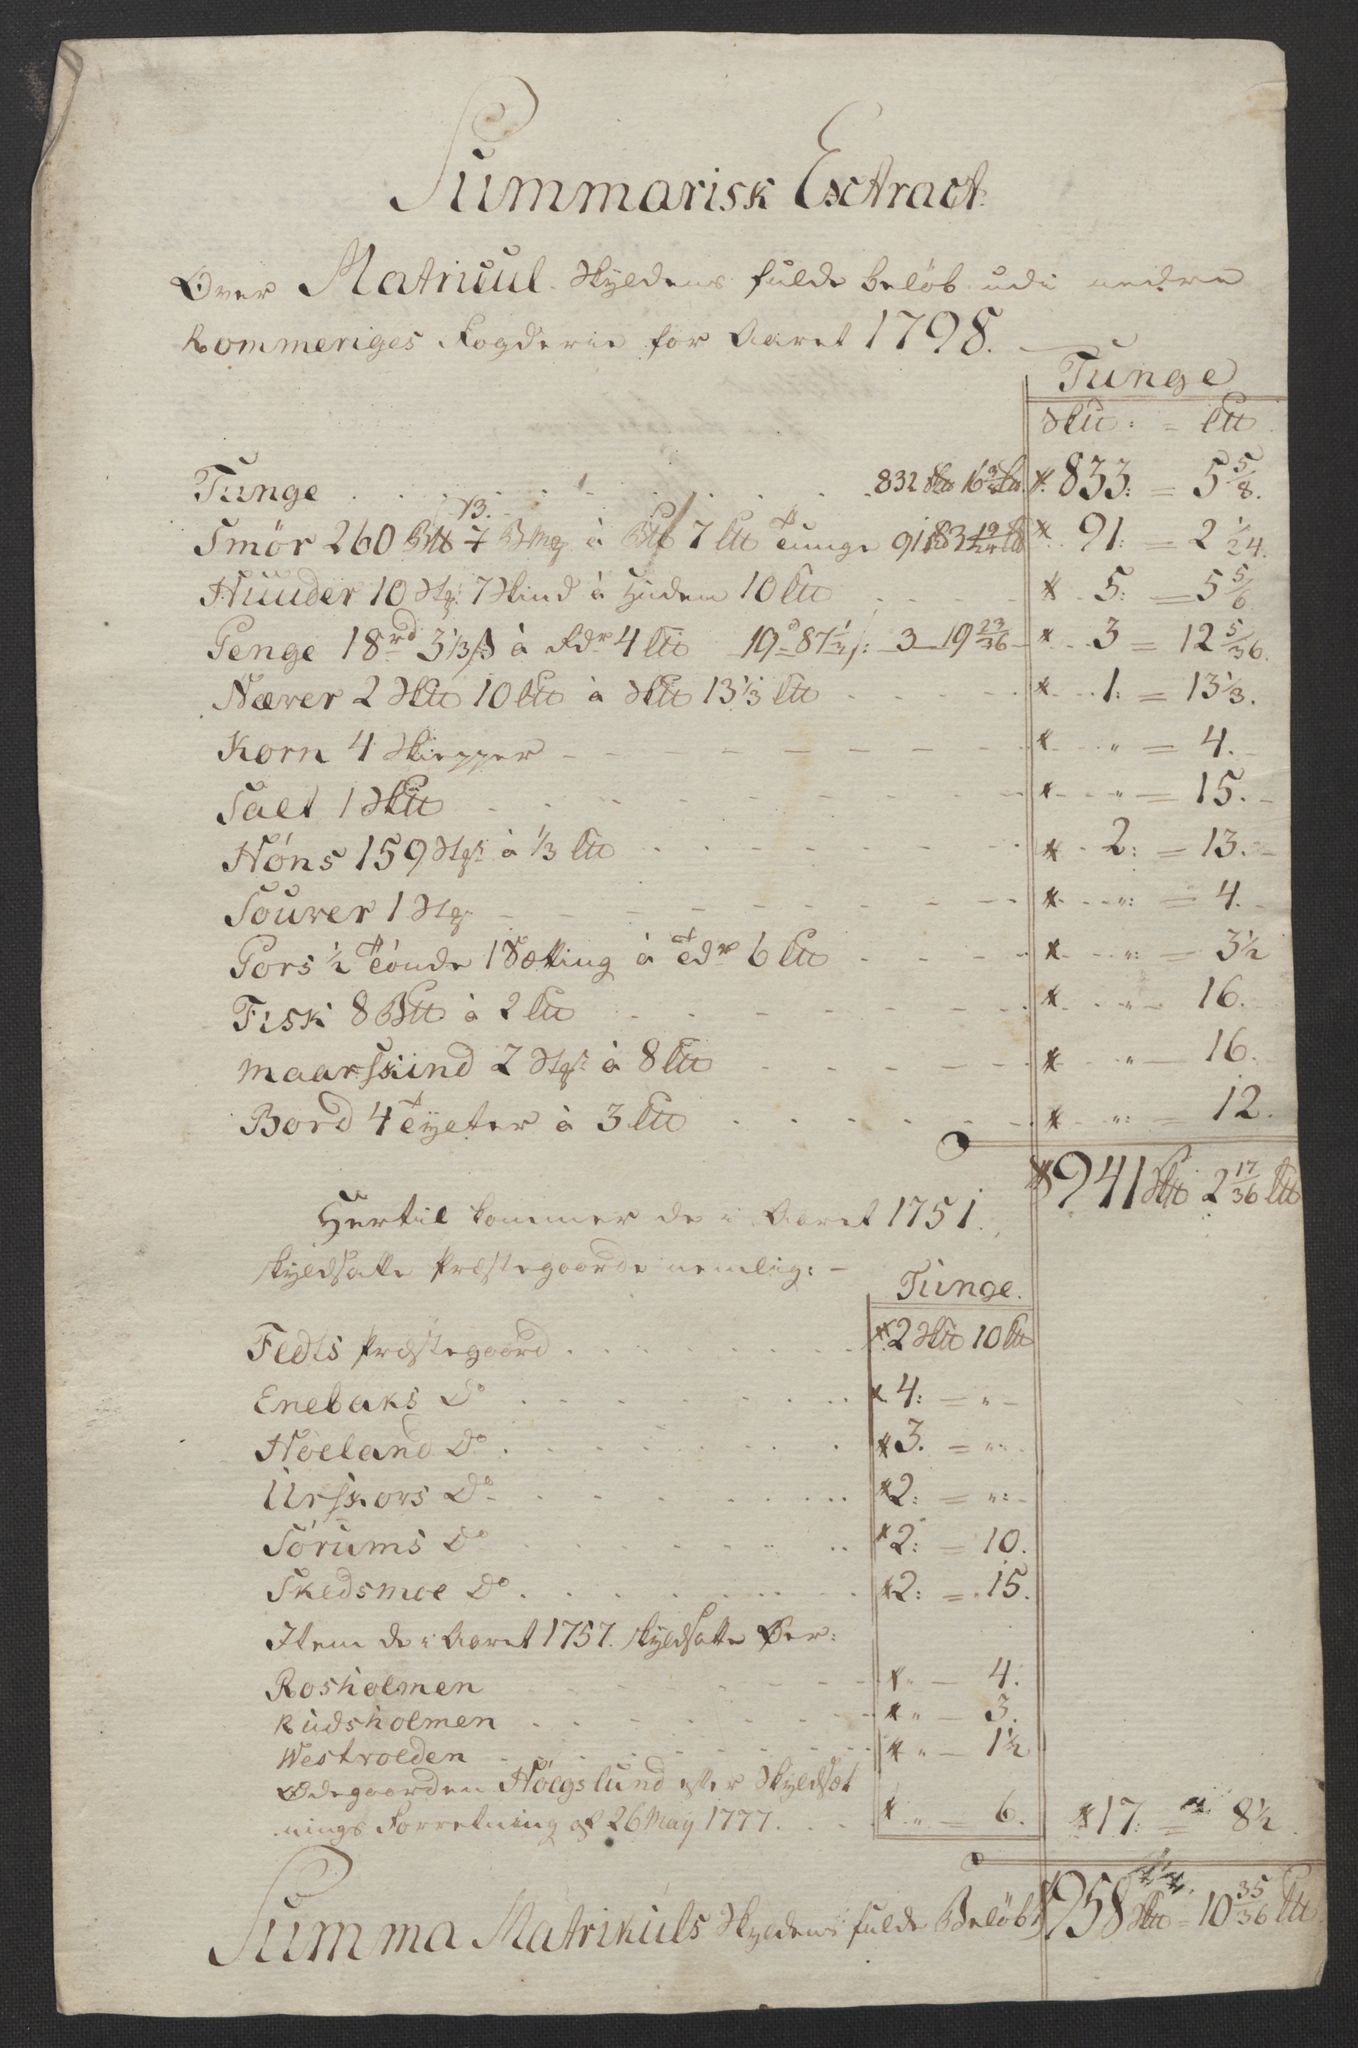 Summarisk Extract
Over Matricul Skyldens fulde beløb udi nedre
Rommeriges Fogderie for Aaret 1798.
Tunge
Sk℔: = ℔
Tunge . . . 832 Sk℔ 16 3/8 ℔ 833: = 5 5/8.
13.
Smör 260 B℔ 7 Bmg à B℔ 7 ℔ Tunge 91 2 1/24.
Huuder 10 Stk: 7 Skind à Huden 10 ℔ 5: = 5 5/6
Penge 18 rd 3 1/3 ß à Rdr 4 ℔ 19 87 1/2 ß: 3 - 19 23/36 3 = 12 5/36.
Næver 2 Sk℔ 10 ℔ à Sk℔ 13 1/3 ℔ 1: = 13 1/3.
Korn 4 Skiepper " = 4.
Salt 1 Sk℔ " = 15.
Höns 159 Stk: à 1/3 ℔ 2: = 13.
Souver 1 Stk ": = 4.
Pors 1/2 Tönde 1 Sætting à Tdr 6 ℔ ": = 3 1/2
Fisk 8 B℔ à 2 ℔ " 16.
Maarskind 2 Stk: à 8 ℔ " 16.
Bord 4 Tylter à 3 ℔ ": = 12.
941 Sk℔ 2 17/36 ℔
Hertil kommer de i Aaret 1751.
skyldsatte Præstegaarde nemlig:
Tunge.
Fedts Præstegaard 2 Sk℔ 10 ℔
Enebaks Do 4: = "
Höeland Do 3. = ":
Urskors Do 2: = ":
Sörums Do 2: = 10.
Skedsmoe Do 2: = 15.
Item de i Aaret 1757. skyldsatte Øer:
Rosholmen " 4.
Rudsholmen " 3.
Westvolden " 1 1/2
Ødegaarden Hölgslund efter Skyldsæt
nings Forretning af 26 May 1777. " 6. 17: = 8 1/2
Summa Matrikuls Skyldens fulde Beløb 958 Sk℔ = 10 35/36 ℔